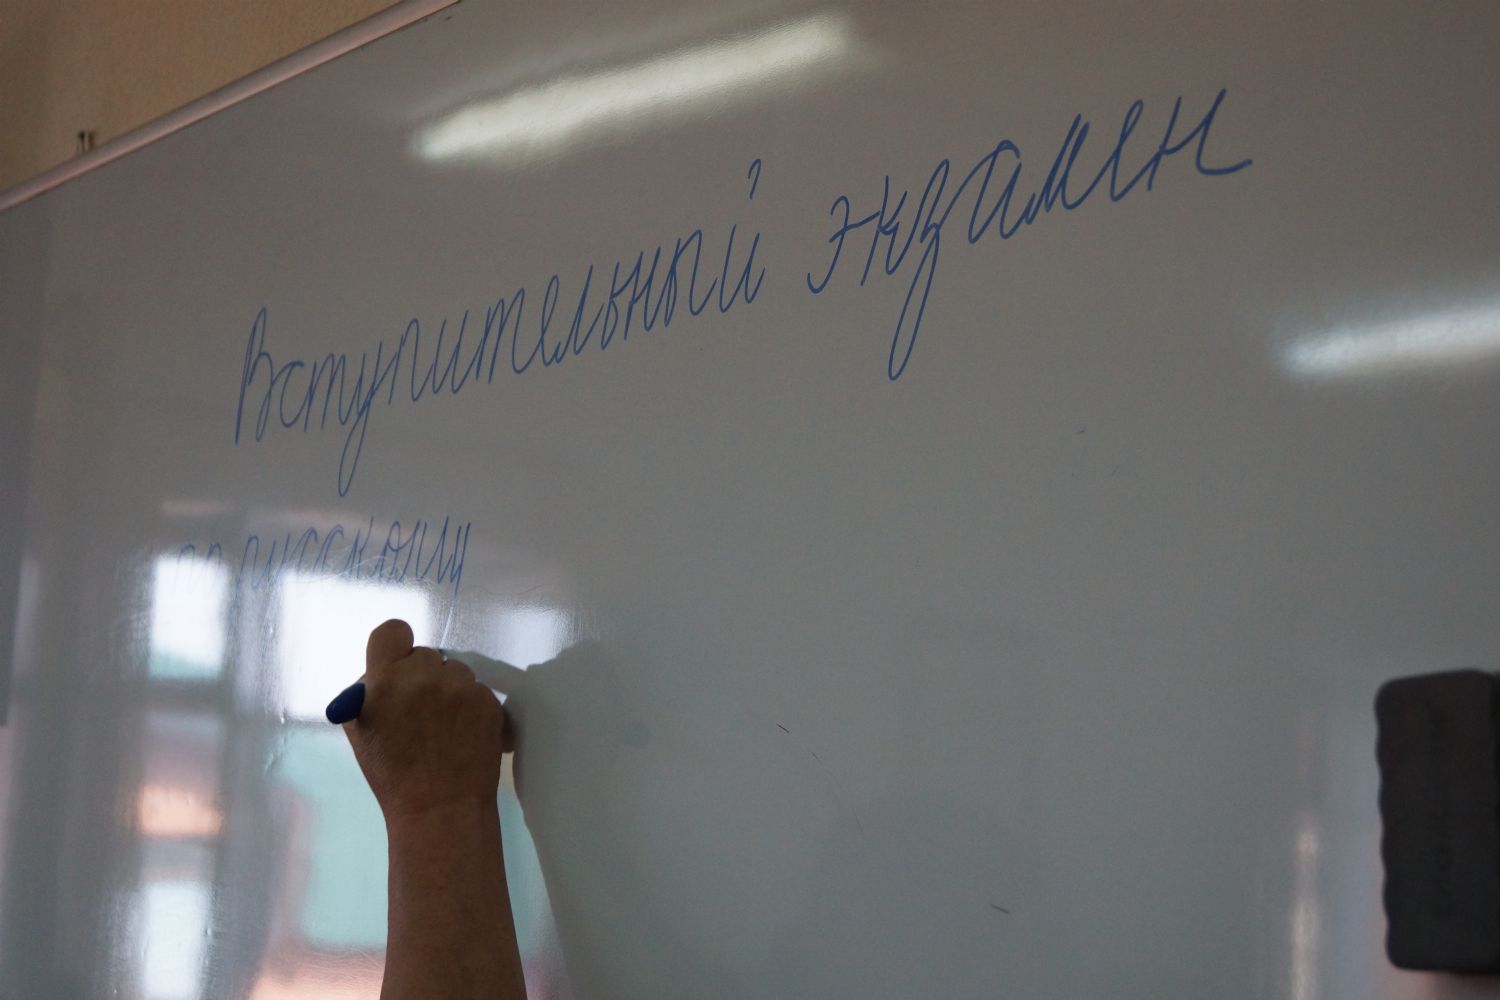 Вступительный экзамен
по русскому